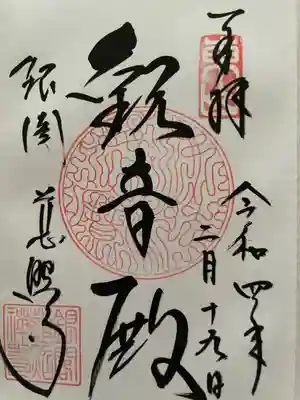 奉拝
令和四年
二月十九日
観音殿
銀閣 慈照寺